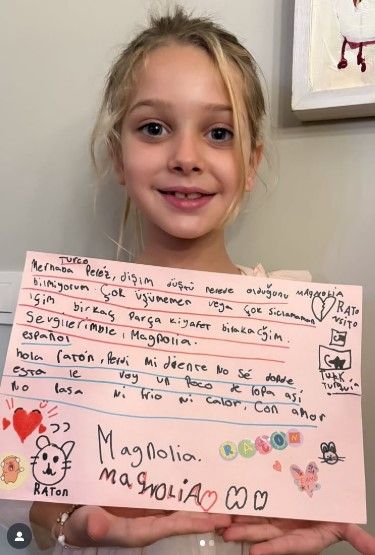 Turco
Merhaba Peréz, dişim düştü nerede olduğunu
bilmiyorum. Çok üşümemen veya çok sıclamaman
için birkaç parça kıyafet bırakacğım.
Sevgilerimle, Magnolia.
español
hola ratón, Perdi mi diente No sé donde
esta le voy un poco de ropa así
no pasa ni frio ni calor, Con amor
Magnolia.
MAGNOLIA
MAGNOLIA
RATON
RATON